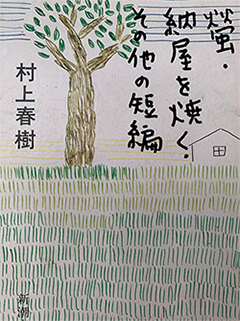 螢・
納屋を焼く・
その他の短編
村上春樹
新潮